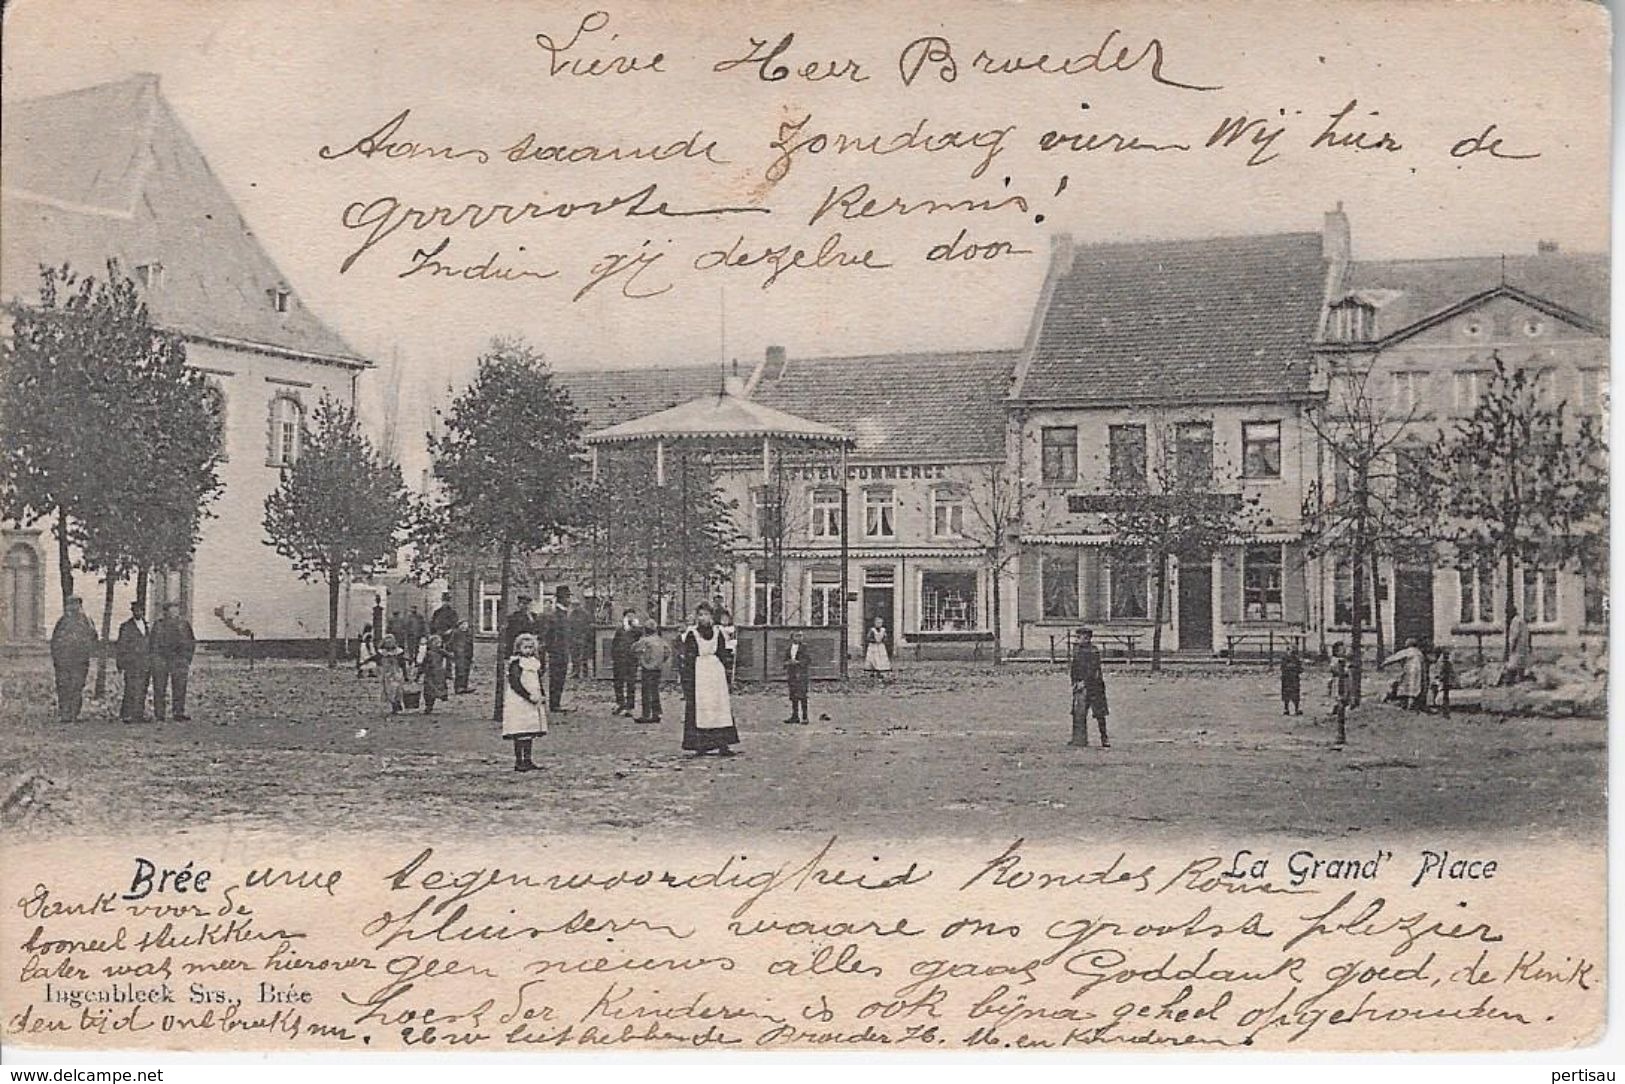 Lieve Heer Broeder
Aanstaande Zondag vieren Wij hier de
grrrrroote Kermis!
Indien gij dezelve door
CAFE DU COMMERCE
Brée
La Grand' Place
uwe tegenwoordigheid kondet komen
opluisteren waare ons grootste plezier
geen nieuws alles gaat Goddank goed, de Kink
hoest der Kinderen is ook bijna geheel opgehouden.
Uw liefhebbende Broeder H. M. en Kinderen.
Dank voor de
tooneel stukken
later wat meer hierover
den tijd ontbreekt nu.
Ingenbleek Srs., Brée
pertisau